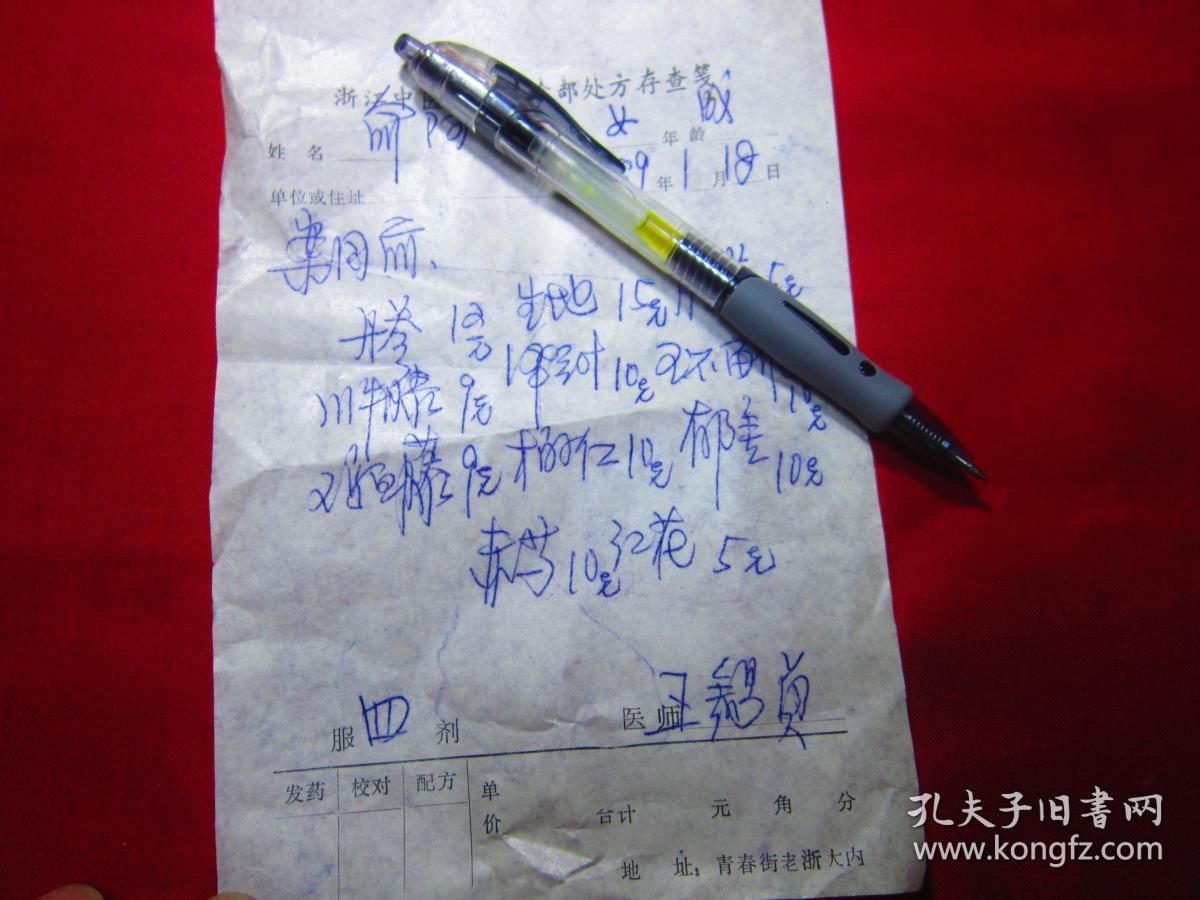 浙江中医 部处方存查笺
姓名 俞 女 年龄 成
单位或住址 89年1月18日
案同前、
丹参 12克 生地 15克 川 5克
川牛膝 9克 10克 王不留 10克
鸡血藤 9克 桃仁 10克 郁金 10克
赤芍 10克 红花 5克
服四剂 医师 王锡贞
发药 校对 配方 单价 合计 元 角 分
地 址：青春街老浙大内
孔夫子旧書网
www.kongfz.com